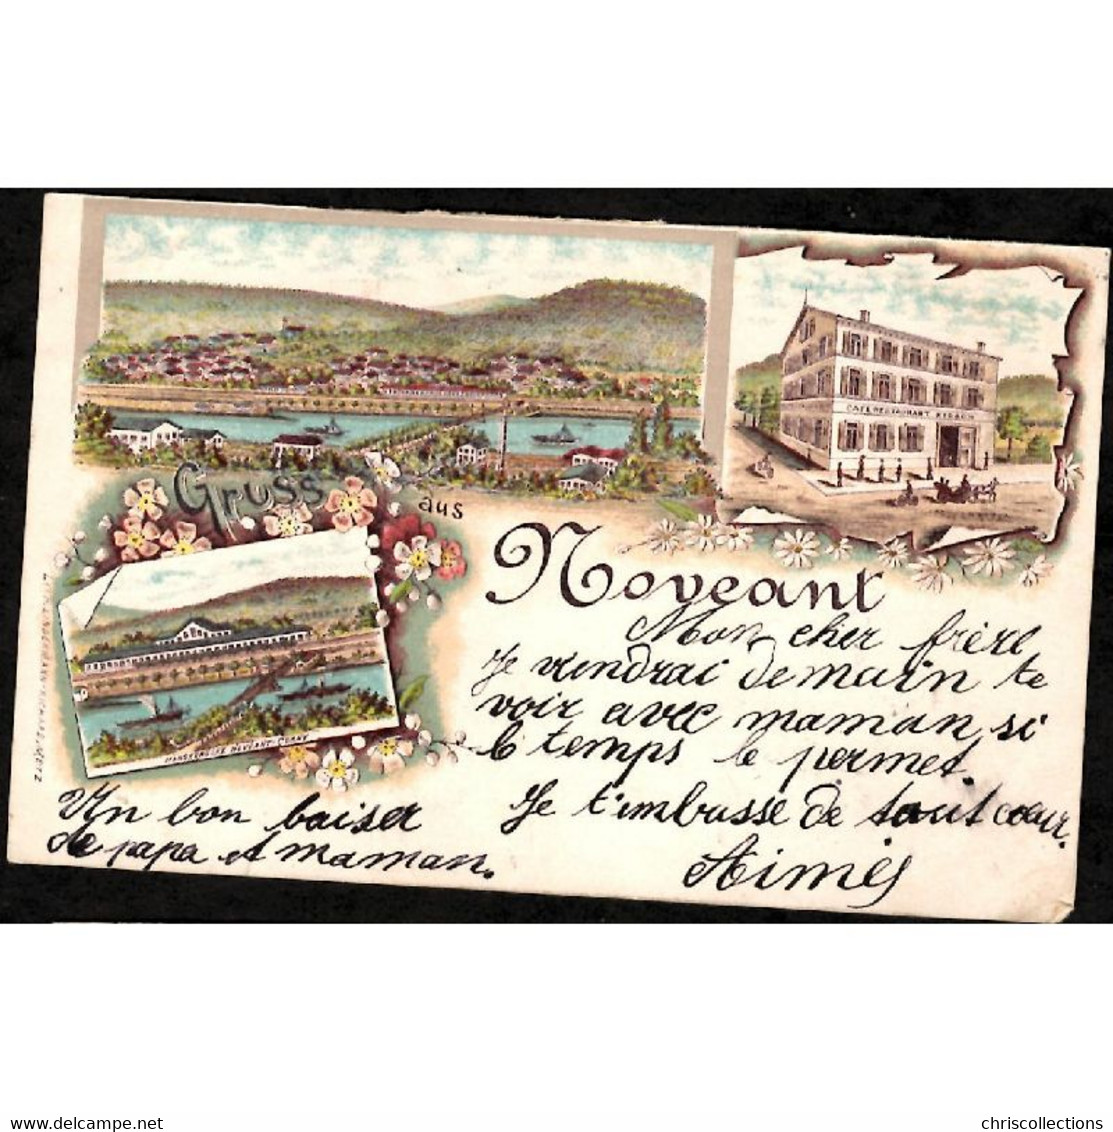 CAFÉ RESTAURANT
Gruss
aus
Noveant
Mon cher frère
Je viendrai demain te
voir avec maman si
le temps le permet.
Je t'embrasse de tout cœur.
Aimés
Un bon baiser
de papa et maman.
delcampe.net
chriscollections